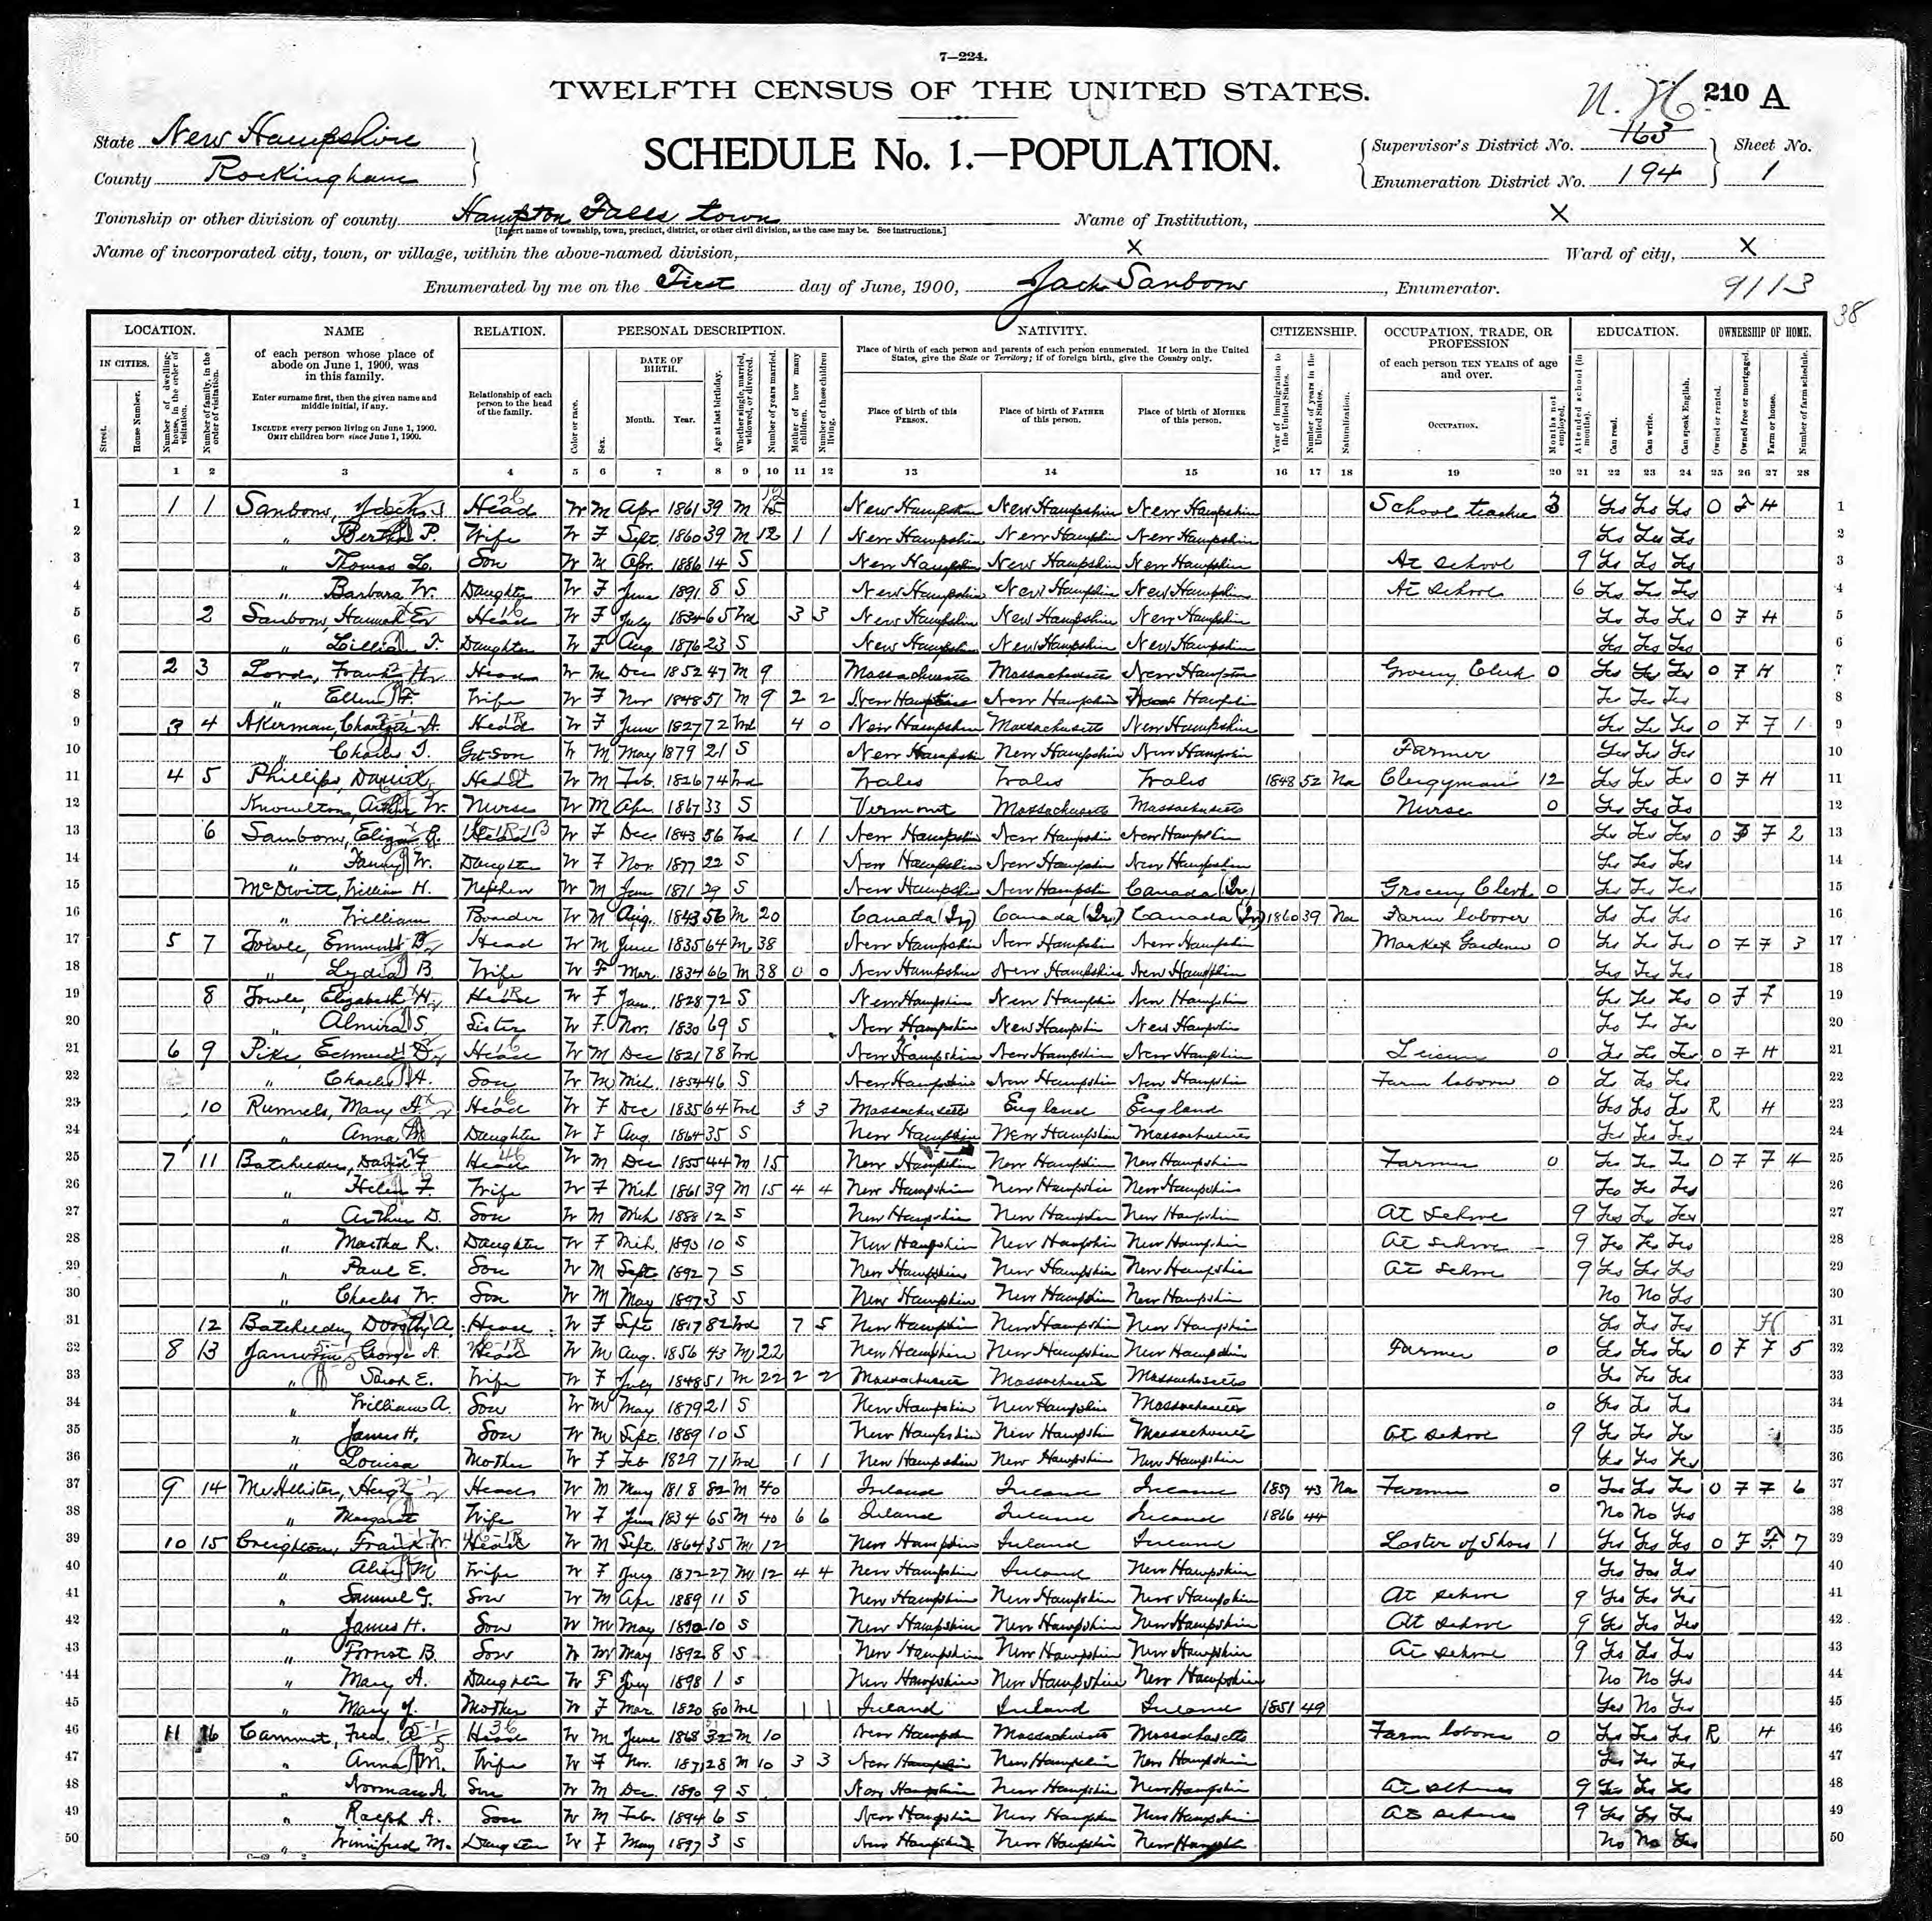 7—224.
TWELFTH CENSUS OF THE UNITED STATES.
N. H. 210 A
State New Hampshire
County Rockingham
SCHEDULE No. 1.—POPULATION.
Supervisor's District No. 163
Enumeration District No. 194
Sheet No. 1
Township or other division of county Hampton Falls town
[Insert name of township, town, precinct, district, or other civil division, as the case may be. See instructions.]
Name of Institution, X
Name of incorporated city, town, or village, within the above-named division, X
Ward of city, X
Enumerated by me on the First day of June, 1900, Jack Sanborn, Enumerator.
9113
38
LOCATION. NAME RELATION. PERSONAL DESCRIPTION. NATIVITY. CITIZENSHIP. OCCUPATION, TRADE, OR PROFESSION EDUCATION. OWNERSHIP OF HOME.
IN CITIES.
Street.
House Number.
Number of dwelling-house, in the order of visitation.
Number of family, in the order of visitation.
of each person whose place of abode on June 1, 1900, was in this family.
Enter surname first, then the given name and middle initial, if any.
INCLUDE every person living on June 1, 1900.
OMIT children born since June 1, 1900.
Relationship of each person to the head of the family.
Color or race.
Sex.
DATE OF BIRTH.
Month. Year.
Age at last birthday.
Whether single, married, widowed, or divorced.
Number of years married.
Mother of how many children.
Number of these children living.
Place of birth of each person and parents of each person enumerated. If born in the United States, give the State or Territory; if of foreign birth, give the Country only.
Place of birth of this PERSON.
Place of birth of FATHER of this person.
Place of birth of MOTHER of this person.
Year of immigration to the United States.
Number of years in the United States.
Naturalization.
of each person TEN YEARS of age and over.
OCCUPATION.
Months not employed.
Attended school (in months).
Can read.
Can write.
Can speak English.
Owned or rented.
Owned free or mortgaged.
Farm or house.
Number of farm schedule.
1 2 3 4 5 6 7 8 9 10 11 12 13 14 15 16 17 18 19 20 21 22 23 24 25 26 27 28
1 1 1 Sanborn, Head W M Apr 1861 39 M New Hampshire New Hampshire New Hampshire School teacher 3 Yes Yes Yes O F H 1
2 " P. Wife W F Sept. 1860 39 M 12 1 1 New Hampshire New Hampshire New Hampshire Yes Yes Yes 2
3 " Thomas L. Son W M Apr. 1886 14 S New Hampshire New Hampshire New Hampshire At school 9 Yes Yes Yes 3
4 " Barbara W. Daughter W F June 1891 8 S New Hampshire New Hampshire New Hampshire At school 6 Yes Yes Yes 4
5 2 Sanborn, Hannah E. Head W F July 1834 65 Wd 3 3 New Hampshire New Hampshire New Hampshire Yes Yes Yes O F H 5
6 " Daughter W F Aug 1876 23 S New Hampshire New Hampshire New Hampshire Yes Yes Yes 6
7 2 3 Lords, Frank H. Head W M Dec 1852 47 M 9 Massachusetts Massachusetts New Hampshire Grocery Clerk 0 Yes Yes Yes O F H 7
8 " Ellen F. Wife W F Nov 1848 51 M 9 2 2 New Hampshire New Hampshire New Hampshire Yes Yes Yes 8
9 3 4 Akerman, A. Head W F June 1827 72 Wd 4 0 New Hampshire Massachusetts New Hampshire Yes Yes Yes O F F 1 9
10 " Charles T. Gd Son W M May 1879 21 S New Hampshire New Hampshire New Hampshire Farmer Yes Yes Yes 10
11 4 5 Phillips, Daniel Head W M Feb. 1826 74 Wd Wales Wales Wales 1848 52 Na Clergyman 12 Yes Yes Yes O F H 11
12 Knowlton, Arthur W. Nurse W M Apr. 1867 33 S Vermont Massachusetts Massachusetts Nurse 0 Yes Yes Yes 12
13 6 Sanborn, Eliza Head W F Dec 1843 56 Wd 1 1 New Hampshire New Hampshire New Hampshire Yes Yes Yes O F F 2 13
14 " W. Daughter W F Nov. 1877 22 S New Hampshire New Hampshire New Hampshire Yes Yes Yes 14
15 McDevitt, William H. Nephew W M June 1871 29 S New Hampshire New Hampshire Canada Grocery Clerk 0 Yes Yes Yes 15
16 " William Boarder W M Aug. 1843 56 M 20 Canada Canada Canada 1860 39 Na Farm laborer Yes Yes Yes 16
17 5 7 Towle, Emmett B. Head W M June 1835 64 M 38 New Hampshire New Hampshire New Hampshire Market Gardener 0 Yes Yes Yes O F F 3 17
18 " Lydia B. Wife W F Mar. 1834 66 M 38 0 0 New Hampshire New Hampshire New Hampshire Yes Yes Yes 18
19 8 Towle, Elizabeth H. Head W F Jan. 1828 72 S New Hampshire New Hampshire New Hampshire Yes Yes Yes O F F 19
20 " Almira S. Sister W F Nov. 1830 69 S New Hampshire New Hampshire New Hampshire Yes Yes Yes 20
21 6 9 Pike, Edmund Head W M Dec 1821 78 Wd New Hampshire New Hampshire New Hampshire Leisure 0 Yes Yes Yes O F H 21
22 " Charles H. Son W M Mch. 1854 46 S New Hampshire New Hampshire New Hampshire Farm laborer 0 Yes Yes Yes 22
23 10 Runnels, Mary A. Head W F Dec 1835 64 Wd 3 3 Massachusetts England England Yes Yes Yes R H 23
24 " Anna M. Daughter W F Aug. 1864 35 S New Hampshire New Hampshire Massachusetts Yes Yes Yes 24
25 7 11 Batchelder, David F. Head W M Dec 1855 44 M 15 New Hampshire New Hampshire New Hampshire Farmer 0 Yes Yes Yes O F F 4 25
26 " Helen F. Wife W F Mch 1861 39 M 15 4 4 New Hampshire New Hampshire New Hampshire Yes Yes Yes 26
27 " Arthur D. Son W M Mch 1888 12 S New Hampshire New Hampshire New Hampshire At school 9 Yes Yes Yes 27
28 " Martha R. Daughter W F Mch. 1890 10 S New Hampshire New Hampshire New Hampshire At school 9 Yes Yes Yes 28
29 " Paul E. Son W M Sept. 1892 7 S New Hampshire New Hampshire New Hampshire At school 9 Yes Yes Yes 29
30 " Charles W. Son W M May 1897 3 S New Hampshire New Hampshire New Hampshire No No Yes 30
31 12 Batchelder, A. Head W F Sept 1817 82 Wd 7 5 New Hampshire New Hampshire New Hampshire Yes Yes Yes H 31
32 8 13 Janvrin, George A. Head W M Aug. 1856 43 M 22 New Hampshire New Hampshire New Hampshire Farmer 0 Yes Yes Yes O F F 5 32
33 " Sarah E. Wife W F July 1848 51 M 22 2 2 Massachusetts Massachusetts Massachusetts Yes Yes Yes 33
34 " William A. Son W M May 1879 21 S New Hampshire New Hampshire Massachusetts 0 Yes Yes Yes 34
35 " James H. Son W M Sept. 1889 10 S New Hampshire New Hampshire Massachusetts At school 9 Yes Yes Yes 35
36 " Louisa Mother W F Feb 1829 71 Wd 1 1 New Hampshire New Hampshire New Hampshire Yes Yes Yes 36
37 9 14 McAllister, Head W M May 1818 82 M 40 Ireland Ireland Ireland 1857 43 Na Farmer 0 Yes Yes Yes O F F 6 37
38 " Margaret Wife W F June 1834 65 M 40 6 6 Ireland Ireland Ireland 1866 44 No No Yes 38
39 10 15 Creighton, Frank W. Head W M Sept. 1864 35 M 12 New Hampshire Ireland Ireland Laster of Shoes 1 Yes Yes Yes O F F 7 39
40 " M Wife W F 1872 27 M 12 4 4 New Hampshire Ireland New Hampshire Yes Yes Yes 40
41 " Samuel G. Son W M Apr 1889 11 S New Hampshire New Hampshire New Hampshire At school 9 Yes Yes Yes 41
42 " James H. Son W M May 1890 10 S New Hampshire New Hampshire New Hampshire At school 9 Yes Yes Yes 42
43 " Forrest B. Son W M May 1892 8 S New Hampshire New Hampshire New Hampshire At school 9 Yes Yes Yes 43
44 " Mary A. Daughter W F July 1898 1 S New Hampshire New Hampshire New Hampshire No No Yes 44
45 " Mary J. Mother W F Mar. 1820 80 Wd 1 1 Ireland Ireland Ireland 1851 49 Yes No Yes 45
46 11 16 Cammet, Fred. Head W M June 1868 32 M 10 New Hampshire Massachusetts Massachusetts Farm laborer 0 Yes Yes Yes R H 46
47 " Anna M. Wife W F Nov. 1871 28 M 10 3 3 New Hampshire New Hampshire New Hampshire Yes Yes Yes 47
48 " Norman A. Son W M Dec. 1890 9 S New Hampshire New Hampshire New Hampshire At school 9 Yes Yes Yes 48
49 " Ralph A. Son W M Feb. 1894 6 S New Hampshire New Hampshire New Hampshire At school 9 Yes Yes Yes 49
50 " Winnifred M. Daughter W F May 1897 3 S New Hampshire New Hampshire New Hampshire No No Yes 50